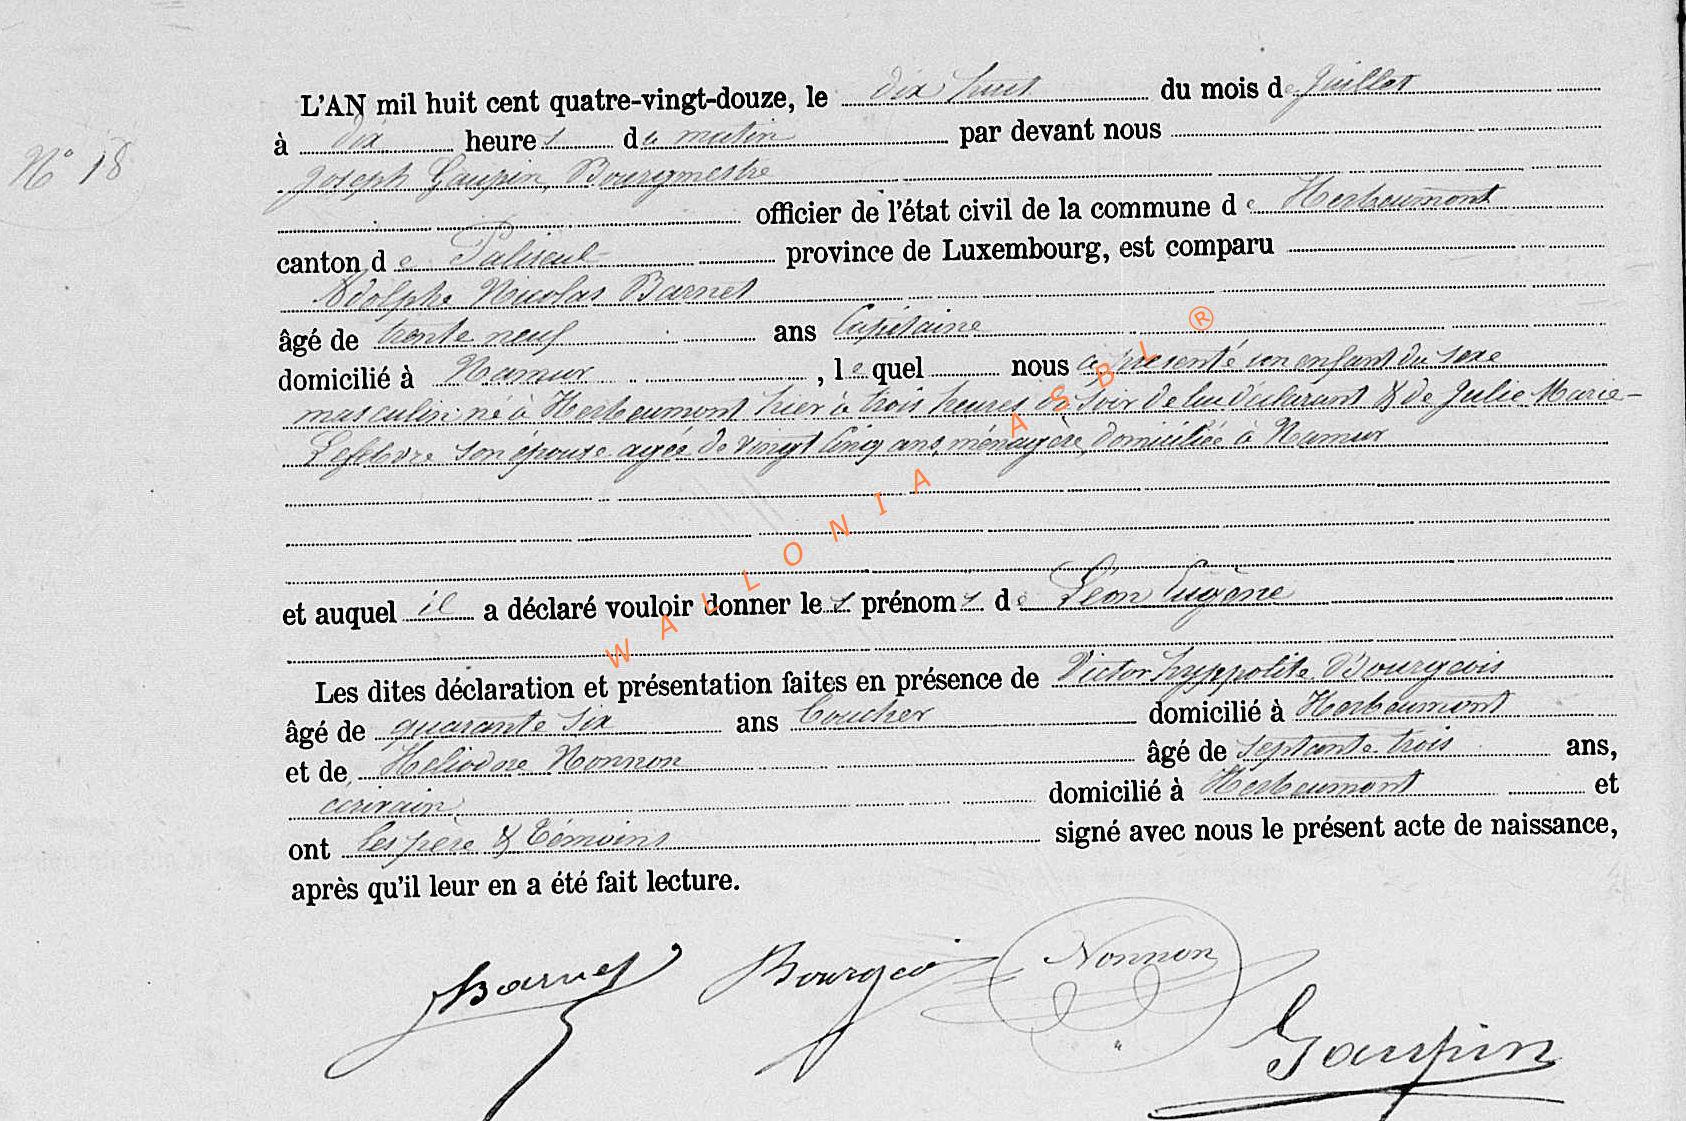 N° 18
L'AN mil huit cent quatre-vingt-douze, le dix huit du mois de Juillet
à dix heures du matin par devant nous
Joseph Gaupin, Bourgmestre
officier de l'état civil de la commune de Herbeumont
canton de Paliseul province de Luxembourg, est comparu
Adolphe Nicolas Barnet
âgé de trente neuf ans Capitaine
domicilié à Namur, lequel nous a présenté un enfant du sexe
masculin né à Herbeumont hier à trois heures du soir de lui déclarant & de Julie Marie-
Lefebvre son épouse agée de vingt cinq ans, ménagère, domiciliée à Namur
et auquel il a déclaré vouloir donner les prénoms de Léon Eugène
Les dites déclaration et présentation faites en présence de Victor hyppolite Bourgeois
âgé de quarante six ans domicilié à Herbeumont
et de Héliodore Nonnon âgé de septante trois ans,
écrivain domicilié à Herbeumont et
ont les père & témoins signé avec nous le présent acte de naissance,
après qu'il leur en a été fait lecture.
Barnet Bourgeois Nonnon
Gaupin
WALLONIA ASBL ®